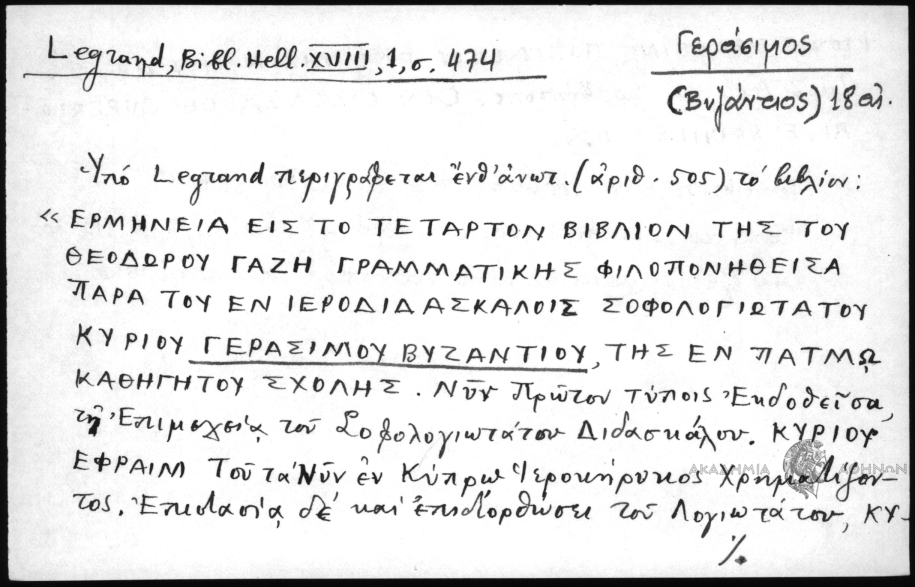 Legrand, Bibl. Hell. XVIII, 1, σ. 474
Γεράσιμος
(Βυζάντιος) 18 αἰ.
Ὑπό Legrand περιγράφεται ἔνθ' ἀνωτ. (ἀριθ. 505) τό βιβλίον:
« ΕΡΜΗΝΕΙΑ ΕΙΣ ΤΟ ΤΕΤΑΡΤΟΝ ΒΙΒΛΙΟΝ ΤΗΣ ΤΟΥ
ΘΕΟΔΩΡΟΥ ΓΑΖΗ ΓΡΑΜΜΑΤΙΚΗΣ ΦΙΛΟΠΟΝΗΘΕΙΣΑ
ΠΑΡΑ ΤΟΥ ΕΝ ΙΕΡΟΔΙΔΑΣΚΑΛΟΙΣ ΣΟΦΟΛΟΓΙΩΤΑΤΟΥ
ΚΥΡΙΟΥ ΓΕΡΑΣΙΜΟΥ ΒΥΖΑΝΤΙΟΥ, ΤΗΣ ΕΝ ΠΑΤΜῼ
ΚΑΘΗΓΗΤΟΥ ΣΧΟΛΗΣ. Νῦν Πρῶτον τύποις Ἐκδοθεῖσα,
τῇ Ἐπιμελείᾳ τοῦ Σοφολογιωτάτου Διδασκάλου. ΚΥΡΙΟΥ
ΕΦΡΑΙΜ Τοῦ τὰ Νῦν ἐν Κύπρῳ Ἱεροκήρυκος Χρηματίζον-
τος. Ἐπιστασίᾳ δέ καί ἐπιδιορθώσει τοῦ Λογιωτάτου, ΚΥ-
./.
ΑΚΑΔΗΜΙΑ ΑΘΗΝΩΝ